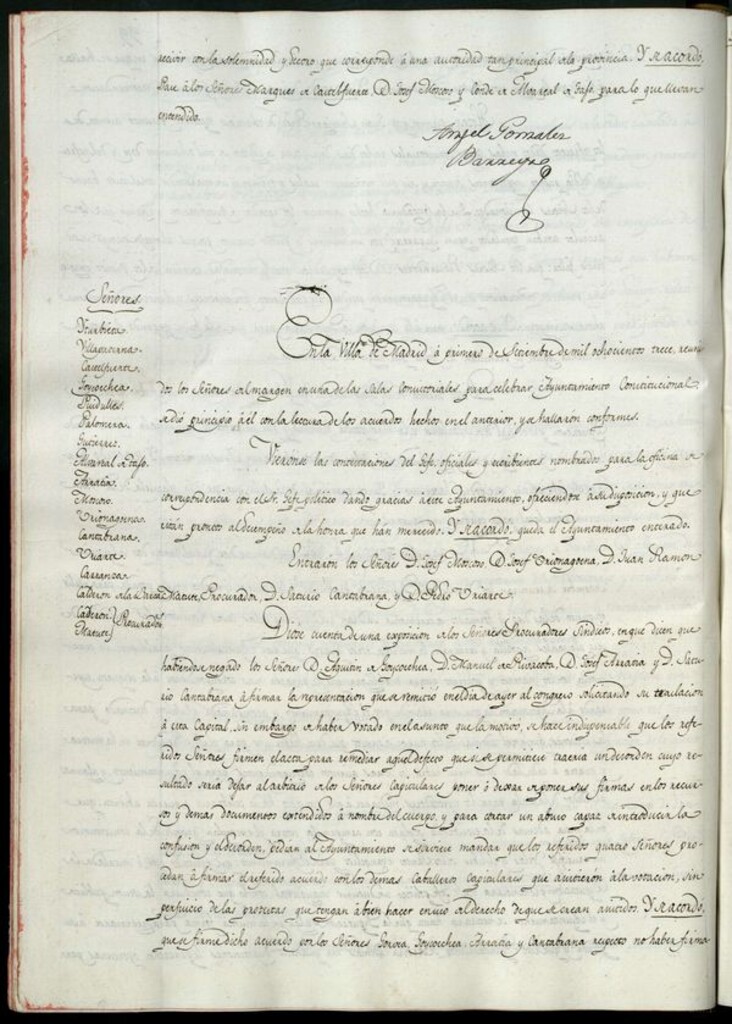 recivir con la solemnidad y decoro que corresponde á una autoridad tan principal de la provincia. Y se acordó,
Pase á los Señores Marques de Castelfuerte, D. Josef Moscoso y Conde de Moarreal de Gaso, para lo que llevan
entendido.
Angel Gonzalez
Barreyro
Señores.
Yturbieta.
Villapaterna.
Castelfuerte.
Goycoechea.
Palomera.
Gutierrez.
Moarreal de Gaso.
Arratia.
Moscoso.
Urionagoena.
Cantabrana.
Uriarte.
Carranza.
Calderon de la
Calderon } Procurador.
Matute
En la Villa de Madrid á primero de Setiembre de mil ochocientos trece, reuni-
dos los Señores al margen en una de las Salas Consistoriales para celebrar Ayuntamiento Constitucional
se dió principio á él con la lectura de los acuerdos hechos en el anterior, y se hallaron conformes.
Vieronse las contestaciones del Gefe, oficiales y escribientes nombrados para la oficina de
correspondencia con el Sr. Gefe politico dando gracias á este Ayuntamiento, ofreciendose á su disposicion, y que
están prontos al desempeño de la honra que han merecido. Y se acordó, queda el Ayuntamiento enterado.
Entraron los Señores D. Josef Moscoso, D. Josef Urionagoena, D. Juan Ramon
Matute, Procurador, D. Saturio Cantabrana, y D. Pedro Uriarte.
Diose cuenta de una exposicion de los Señores Procuradores Sindicos, en que dicen que
habiendose negado los Señores D. Agustin de Goycoechea, D. Manuel de Rivacoba, D. Josef Arratia y D. Satu-
rio Cantabrana á firmar la representacion que se remitió en el dia de ayer al congreso solicitando su traslacion
á esta Capital, sin embargo de haber votado en el asunto que la motivó, se hace indispensable que los refe-
ridos Señores firmen el acta para remediar aquel defecto que si se permitiese traeria un desorden cuyo re-
sultado seria dejar al arbitrio de los Señores Capitulares poner ó dexar de poner sus firmas en los recur-
sos y demas documentos extendidos á nombre del cuerpo, y para cortar un abuso capaz de introducir la
confusion y el desorden, pedian al Ayuntamiento se sirviese mandar que los referidos quatro Señores pro-
cedan á firmar el referido acuerdo con los demas Caballeros Capitulares que asistieron á la votacion, sin
perjuicio de las protestas que tengan á bien hacer en uso del derecho de que se crean asistidos. Y se acordó,
que se firme dicho acuerdo por los Señores Goycoechea, Arratia y Cantabrana respecto no haber firma-